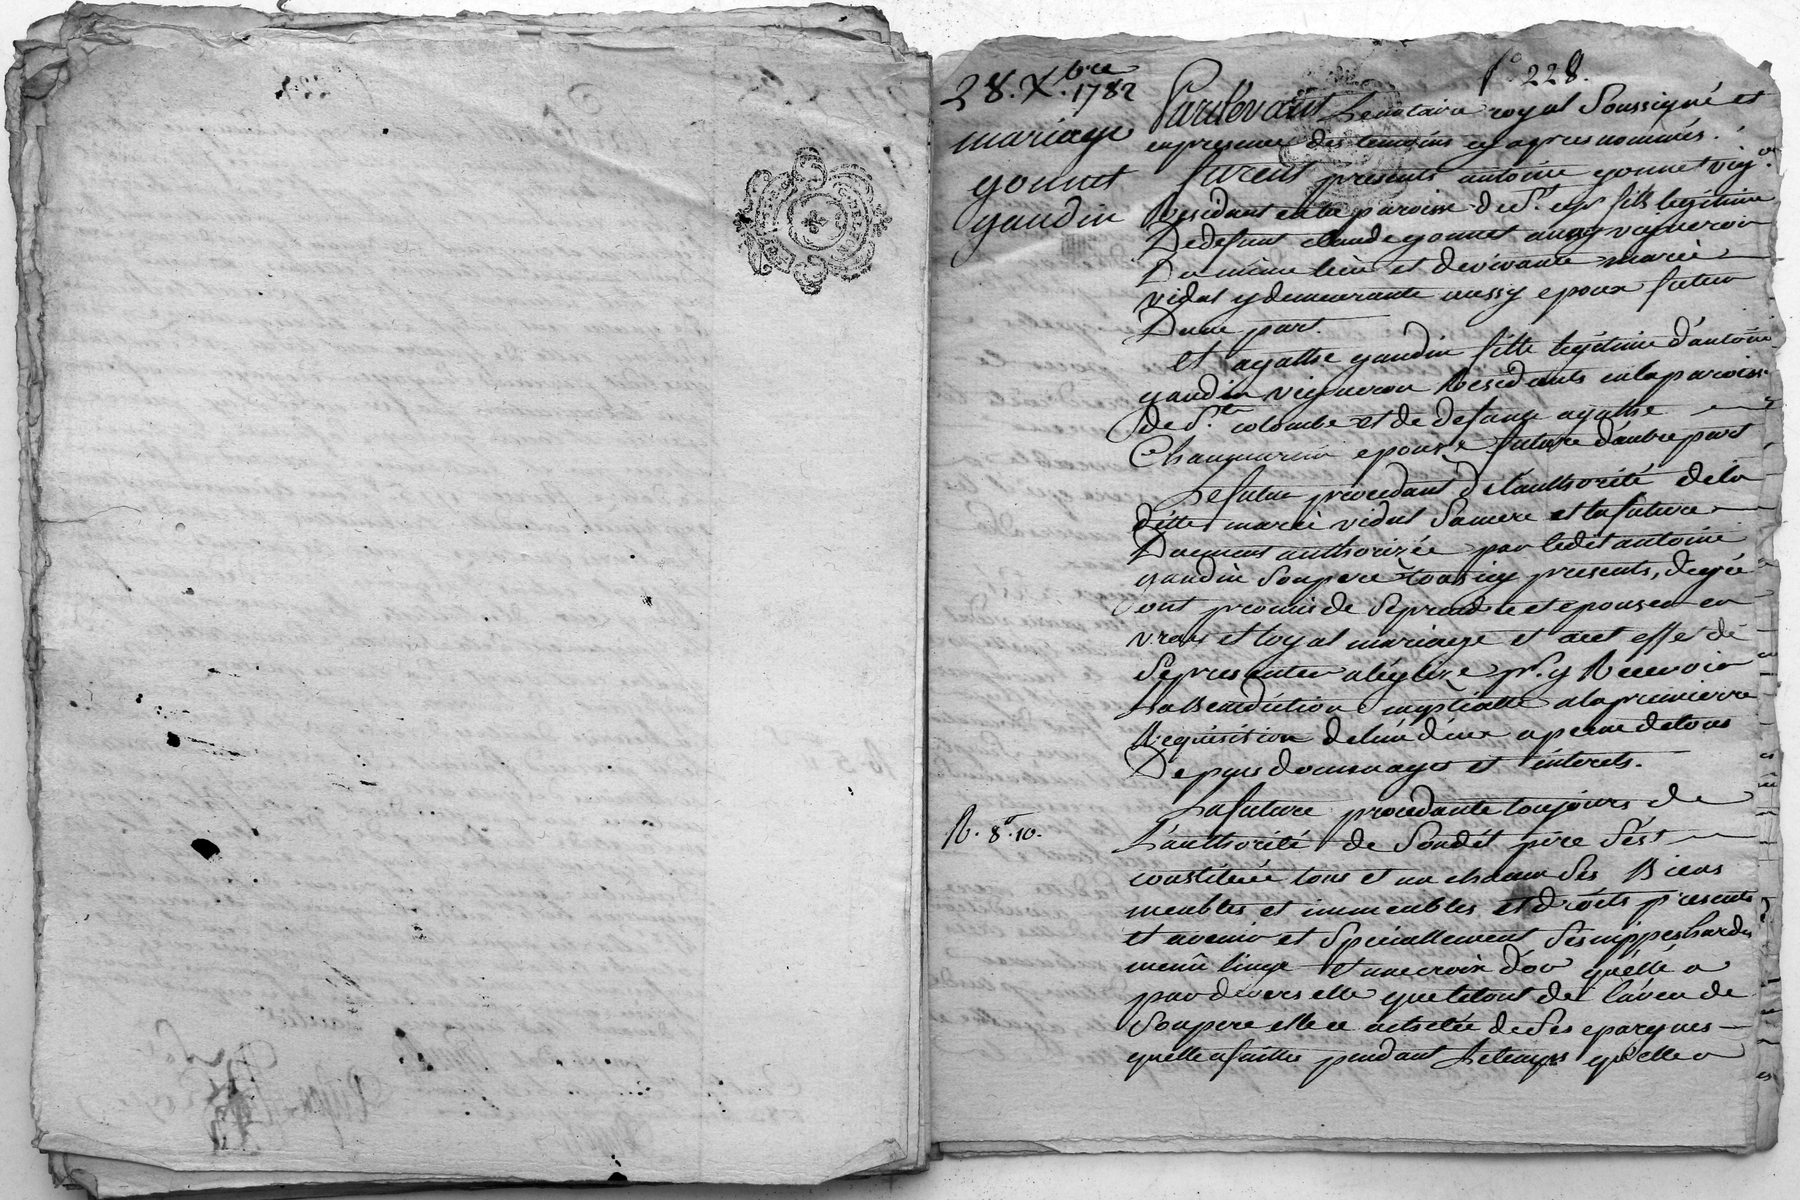 28. Xbre 1782
mariage
gonnet
gaudin
fo 228.
Pardevant Le notaire royal Soussigné et
en presence des temoins cy apres nommés.
furent presents antoine gonnet vig.on
Residant en la paroisse de St cyr fils legitime
De defunt claude gonnet aussy vigneron
Du même lieu et de vivante marie
vidal y demeurante aussy epoux futur
D'une part.
et agathe gaudin fille legitime d'antoine
gaudin vigneron Residants en la paroisse
de Ste colombe et de defunte agathe
epouse future d'autre part
Le futur procedant de L'authorité de la
ditte marie vidal Sa mere et la future
Duement authorizée par ledit antoine
gaudin Son pere tous icy presents, de gré
ont promis de Se prendre et epouser en
vray et loyal mariage et a cet effet de
Se presenter a l'eglize pr. y Recevoir
La Benediction nuptialle a la premierre
Requisition de l'un d'eux a peine de tous
Depens dommages et interets.
R. 8.10.
La future procedante toujours de
L'authorité de Son dit pere S'est
constituée tous et un chacun Ses Biens
meubles et immeubles et droits presents
et avenir et Specialement Ses nippes hardes
menû linge et une croix d'or qu'elle a
par devers elle que le tout de l'aveu de
Son pere elle a achetée de Ses epargnes
qu'elle a faittes pendant Le temps qu'elle a